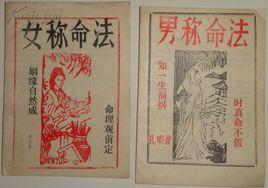 女称命法
姻缘自然成
命理观前定
男称命法
知一生福祸
时真命不假
孔明著